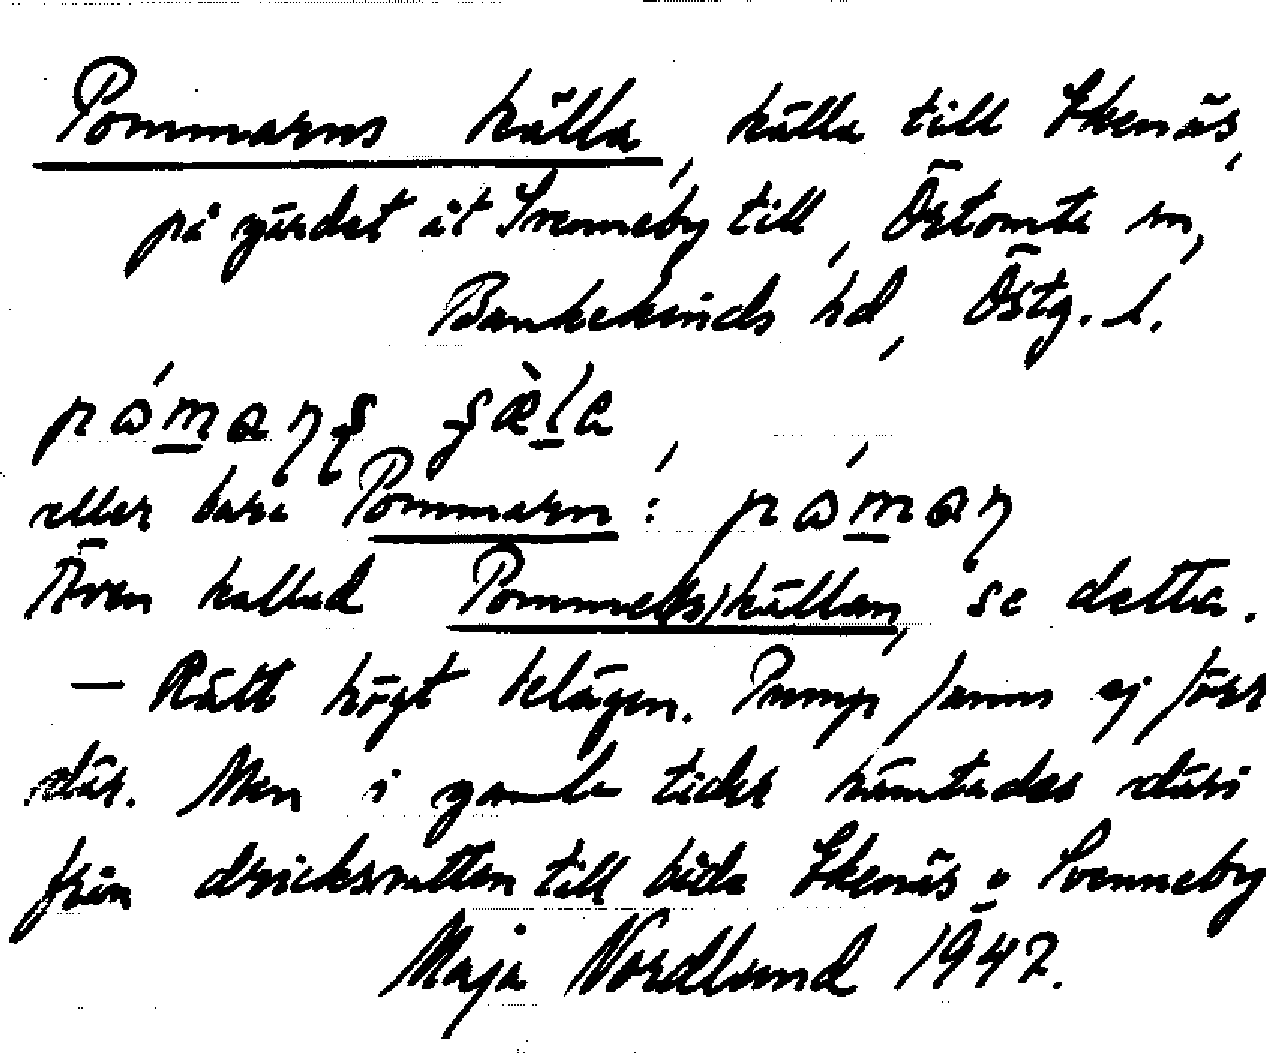 Pommarns källa, källa till Ekenäs,
på gärdet åt Svenneby till, Östomta sn,
Bankekinds hd, Östg. l.
eller bara Pommarn:
Även kallad Pommel(s)källan, se detta.
— Rätt högt belägen. Pump fanns ej förr
där. Men i gamla tider hämtades däri
från dricksvatten till båda Ekenäs o Svenneby
Maja Nordlund 1947.